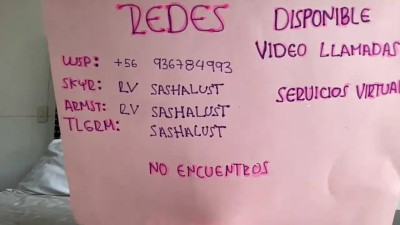 REDES
DISPONIBLE
VIDEO LLAMADAS
SERVICIOS VIRTUA
WSP: +56 936784993
SKYR: RV SASHALUST
ARMST: RV SASHALUST
TLGRM: SASHALUST
NO ENCUENTROS